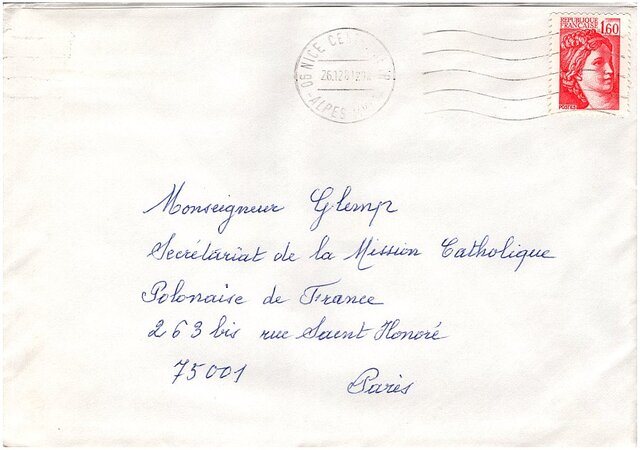 RÉPUBLIQUE
FRANÇAISE
1,60
POSTES
06 NICE
26.12
ALPES
Monseigneur Glemp
Secrétariat de la Mission Catholique
Polonaise de France
263 bis rue Saint Honoré
75001 Paris